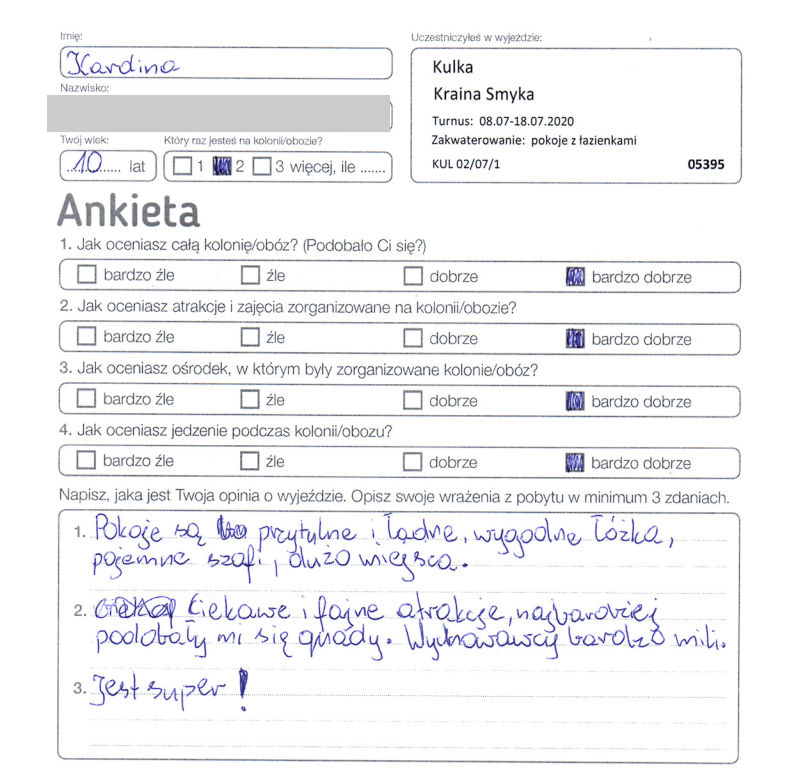 Imię:
Karolina
Nazwisko:
Twój wiek:
10 lat
Który raz jesteś na kolonii/obozie?
1 2 3 więcej, ile .......
Uczestniczyłeś w wyjeździe:
Kulka
Kraina Smyka
Turnus: 08.07-18.07.2020
Zakwaterowanie: pokoje z łazienkami
KUL 02/07/1 05395
Ankieta
1. Jak oceniasz całą kolonię/obóz? (Podobało Ci się?)
bardzo źle źle dobrze bardzo dobrze
2. Jak oceniasz atrakcje i zajęcia zorganizowane na kolonii/obozie?
bardzo źle źle dobrze bardzo dobrze
3. Jak oceniasz ośrodek, w którym były zorganizowane kolonie/obóz?
bardzo źle źle dobrze bardzo dobrze
4. Jak oceniasz jedzenie podczas kolonii/obozu?
bardzo źle źle dobrze bardzo dobrze
Napisz, jaka jest Twoja opinia o wyjeździe. Opisz swoje wrażenia z pobytu w minimum 3 zdaniach.
1. Pokoje są przytulne i ładne, wygodne łóżka,
pojemne szafi, dużo miejsca.
2. Ciekawe i fajne atrakcje, najbardziej
podobały mi się quady. Wychowawcy bardzo mili.
3. Jest super!